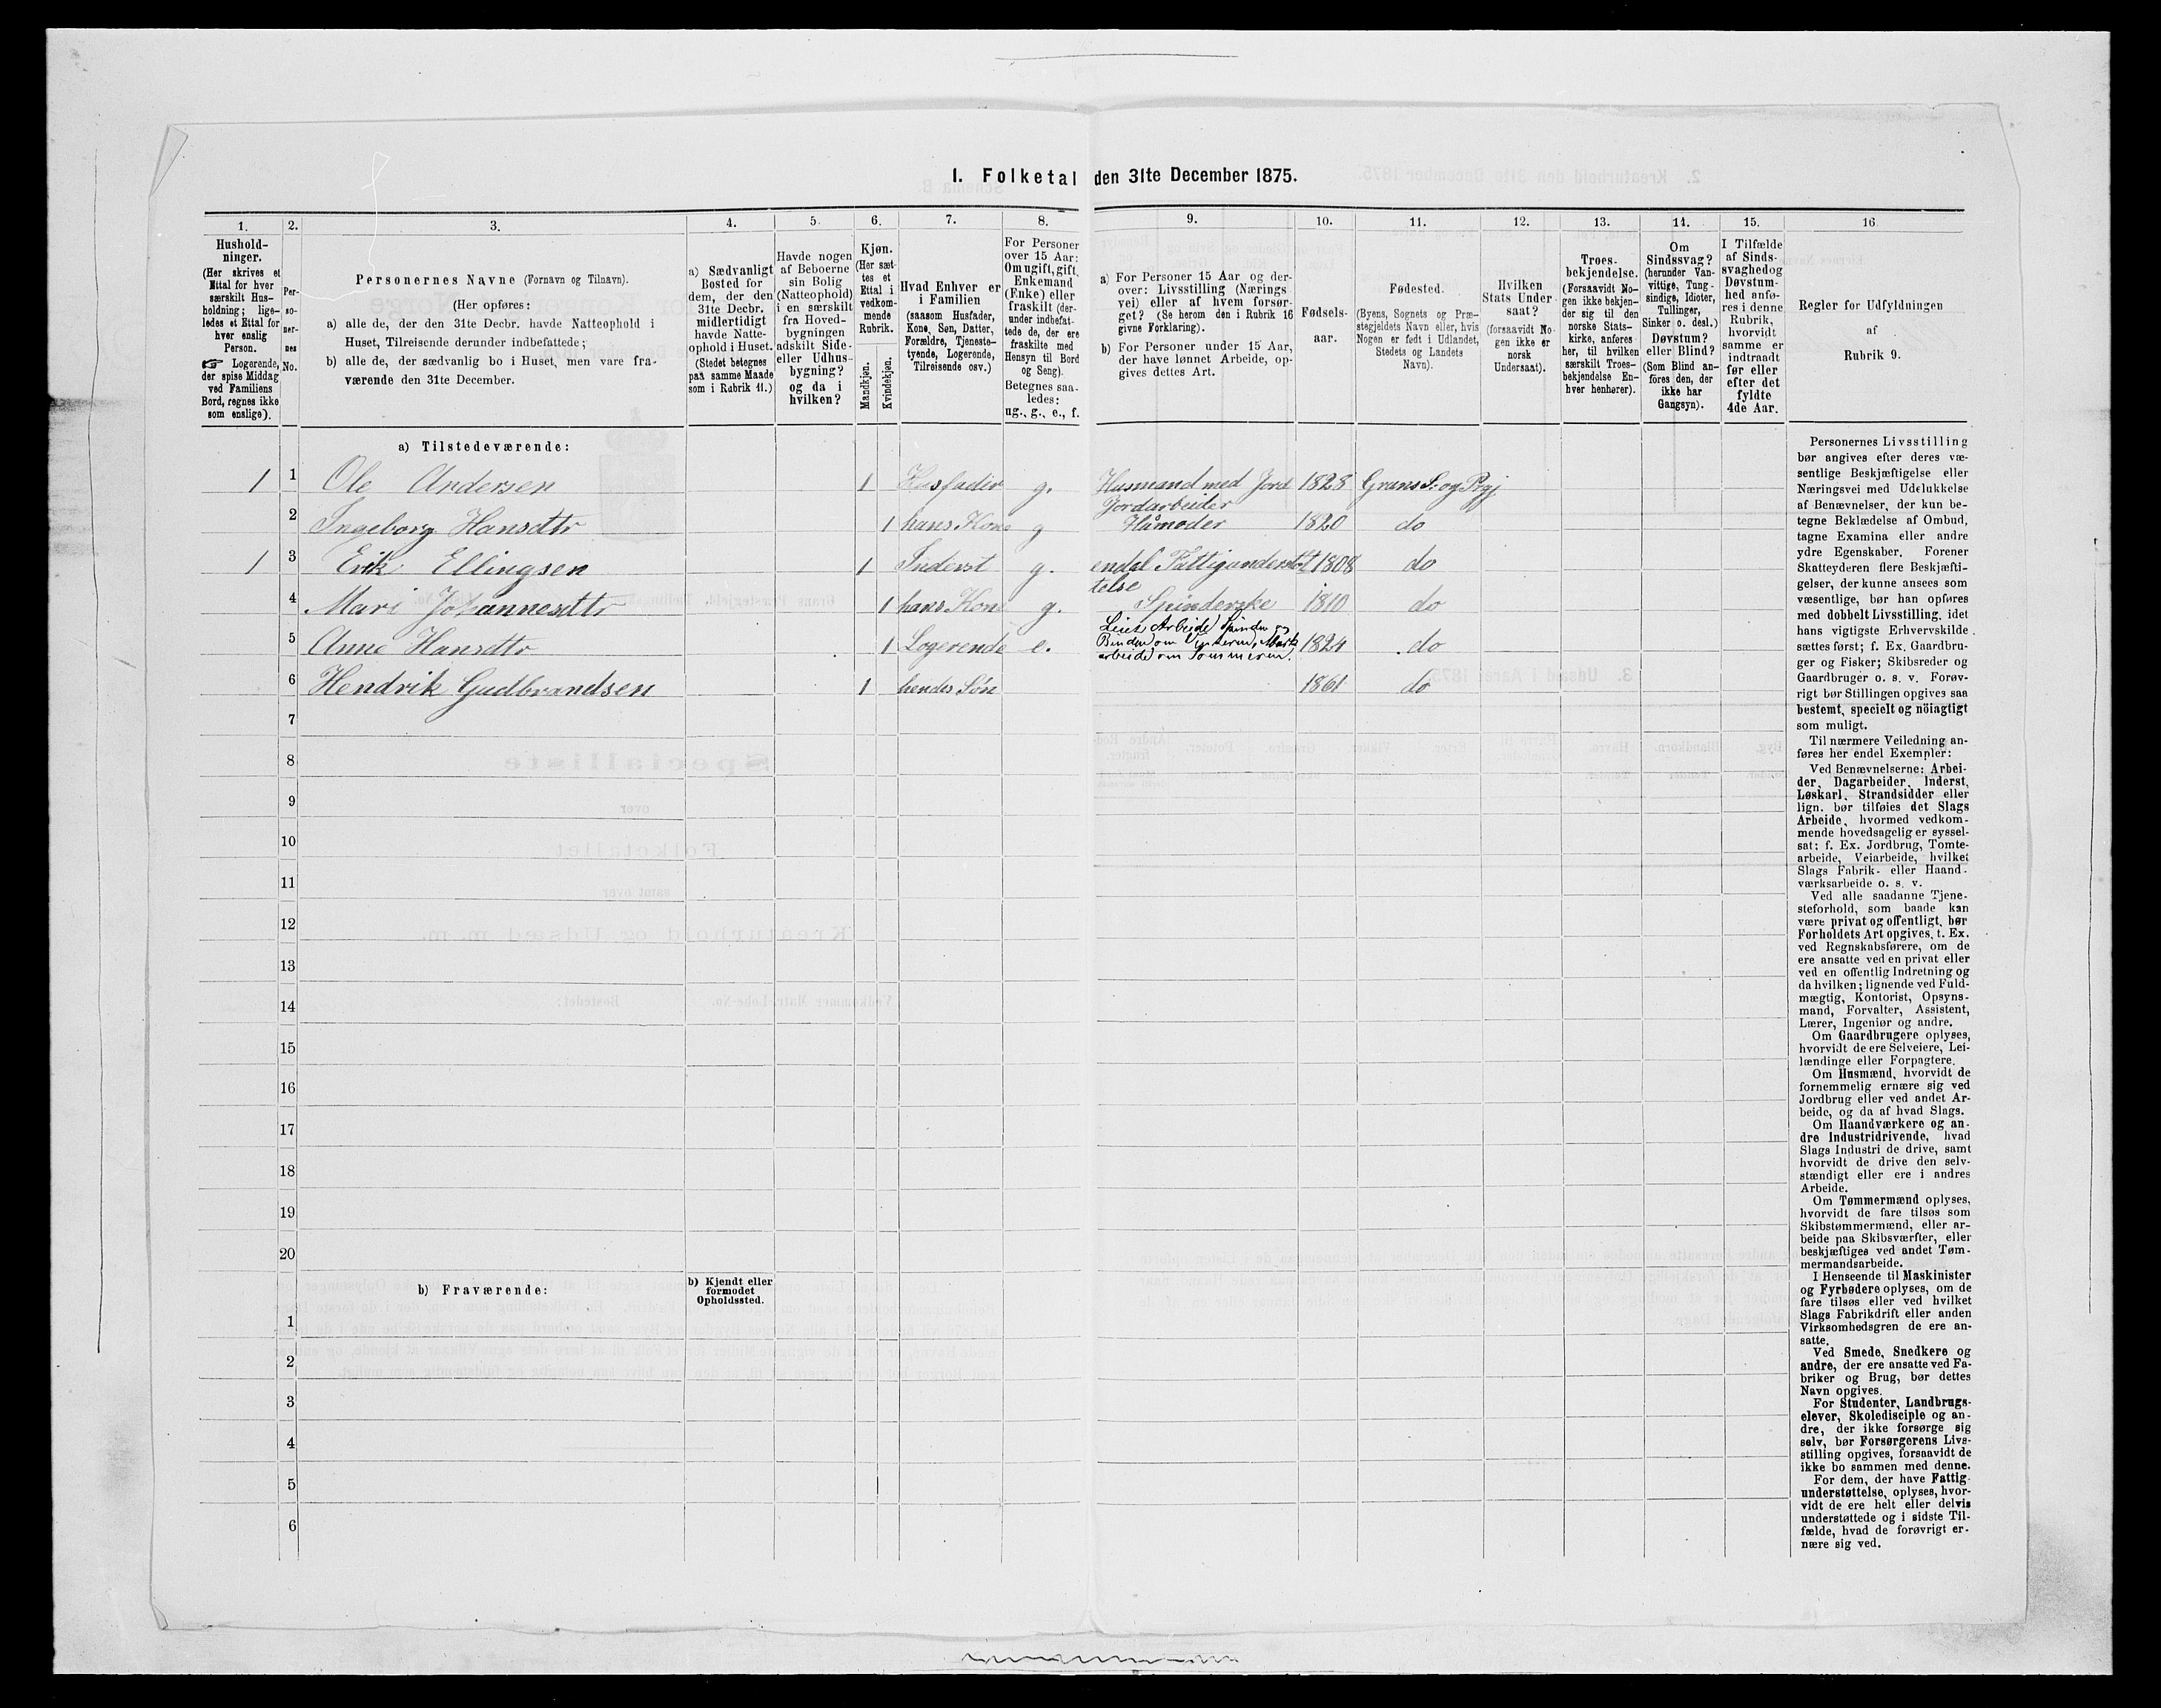 I. Folketal den 31te December 1875.
1.
Hushold-
ninger.
(Her skrives et
Ettal for hver
særskilt Hus-
holdning; lige-
ledes et Ettal for
hver enslig
Person.
☞ Logerende,
der spise Middag
ved Familiens
Bord, regnes ikke
som enslige).
2.
Per-
so-
ner-
nes
No.
3.
Personernes Navne (Fornavn og Tilnavn).
(Her opføres:
a) alle de, der den 31te Decbr. havde Natteophold i
Huset, Tilreisende derunder indbefattede;
b) alle de, der sædvanlig bo i Huset, men vare fra-
værende den 31te December.
4.
a) Sædvanligt
Bosted for
dem, der den
31te Decbr.
midlertidigt
havde Natte-
ophold i Huset.
(Stedet betegnes
paa samme Maade
som i Rubrik 11.)
5.
Havde nogen
af Beboerne
sin Bolig
(Natteophold)
i en særskilt
fra Hoved-
bygningen
adskilt Side-
eller Udhus-
bygning?
og da i
hvilken?
6.
Kjøn.
(Her sæt-
tes et
Ettal i
vedkom-
mende
Rubrik.
Mandkjøn.
Kvindekjøn.
7.
Hvad Enhver er
i Familien
(saasom Husfader,
Kone, Søn, Datter,
Forældre, Tjeneste-
tyende, Logerende,
Tilreisende osv.)
8.
For Personer
over 15 Aar:
Om ugift, gift,
Enkemand
(Enke) eller
fraskilt (der-
under indbefat-
tede de, der ere
fraskilte med
Hensyn til Bord
og Seng).
Betegnes saa-
ledes:
ug., g., e., f.
9.
a) For Personer 15 Aar og der-
over: Livsstilling (Nærings
vei) eller af hvem forsør-
get? (Se herom den i Rubrik 16
givne Forklaring).
b) For Personer under 15 Aar,
der have lønnet Arbeide, op-
gives dettes Art.
10.
Fødsels-
aar.
11.
Fødested.
(Byens, Sognets og Præ-
stegjeldets Navn eller, hvis
Nogen er født i Udlandet,
Stedets og Landets
Navn).
12.
Hvilken
Stats Under-
saat?
(forsaavidt No-
gen ikke er
norsk
Undersaat).
13.
Troes-
bekjendelse.
(Forsaavidt No-
gen ikke bekjen-
der sig til den
norske Stats-
kirke, anføres
her, til hvilken
særskilt Troes-
bekjendelse En-
hver henhører).
14.
Om
Sindssvag?
(herunder Van-
vittige, Tung-
sindige, Idioter,
Tullinger,
Sinker o. desl.)
Døvstum?
eller Blind?
(Som Blind an-
føres den, der
ikke har
Gangsyn).
15.
I Tilfælde
af Sinds-
svaghedog
Døvstum-
hed anfø-
res i denne
Rubrik,
hvorvidt
samme er
indtraadt
før eller
efter det
fyldte
4de Aar.
16
Regler for Udfyldningen
af
Rubrik 9.
a) Tilstedeværende:
1 1 Ole Andersen 1 Husfader g. Husmand med Jord 1828 Grans S. og Prgj
Jordarbeider
2 Ingeborg Hansdtr 1 hans Kone g 1820 do
1 3 Erik Ellingsen 1 Inderst g. endel Fattigunderstøt 1808 do
telse
4 Mari Johannesdtr 1 hans Kone g. Spinderske 1810 do
Leiet Arbeide, Spinder og
5 Anne Hansdtr 1 Logerende e. Binder om Vinteren, Mark 1824 do
arbeide om Sommeren.
6 Hendrik Gudbrandsen 1 hendes Søn 1861 do
7
8
9
10
11
12
13
14
15
16
17
18
19
20
b) Fraværende:
b) Kjendt eller
formodet
Opholdssted.
1
2
3
4
5
6
Personernes Livsstilling
bør angives efter deres væ-
sentlige Beskjæftigelse eller
Næringsvei med Udelukkelse
af Benævnelser, der kun be-
tegne Beklædelse af Ombud,
tagne Examina eller andre
ydre Egenskaber. Forener
Skatteyderen flere Beskjæfti-
gelser, der kunne ansees som
væsentlige, bør han opføres
med dobbelt Livsstilling, idet
hans vigtigste Erhvervskilde
sættes først; f. Ex. Gaardbru-
ger og Fisker; Skibsreder og
Gaardbruger o. s. v. Forøv-
rigt bør Stillingen opgives saa
bestemt, specielt og nöiagtigt
som muligt.
Til nærmere Veiledning an-
føres her endel Exempler:
Ved Benævnelserne: Arbei-
der, Dagarbeider, Inderst,
Løskarl, Strandsidder eller
lign. bør tilføies det Slags
Arbeide, hvormed vedkom-
mende hovedsagelig er syssel-
sat; f. Ex. Jordbrug, Tomte-
arbeide, Veiarbeide, hvilket
Slags Fabrik- eller Haand-
værksarbeide o. s. v.
Ved alle saadanne Tjene-
steforhold, som baade kan
være privat og offentligt, bør
Forholdets Art opgives, t. Ex.
ved Regnskabsførere, om de
ere ansatte ved en privat eller
ved en offentlig Indretning og
da hvilken; lignende ved Fuld-
mægtig, Kontorist, Opsyns-
mand, Forvalter, Assistent,
Lærer, Ingeniør og andre.
Om Gaardbrugere oplyses,
hvorvidt de ere Selveiere, Lei-
lændinge eller Forpagtere.
Om Husmænd, hvorvidt de
fornemmelig ernære sig ved
Jordbrug eller ved andet Ar-
beide, og da af hvad Slags.
Om Haandværkere og an-
dre Industridrivende, hvad
Slags Industri de drive, samt
hvorvidt de drive den selv-
stændigt eller ere i andres
Arbeide.
Om Tømmermænd oplyses,
hvorvidt de fare tilsøs som
Skibstømmermænd, eller ar-
beide paa Skibsværfter, eller
beskjæftiges ved andet Tøm-
mermandsarbeide.
I Henseende til Maskinister
og Fyrbødere oplyses, om de
fare tilsøs eller ved hvilket
Slags Fabrikdrift eller anden
Virksomhedsgren de ere an-
satte.
Ved Smede, Snedkere og
andre, der ere ansatte ved Fa-
briker og Brug, bør dettes
Navn opgives.
For Studenter, Landbrugs-
elever, Skoledisciple og an-
dre, der ikke forsørge sig
selv, bør Forsørgerens Livs-
stilling opgives, forsaavidt de
ikke bo sammen med denne.
For dem, der have Fattig-
understøttelse, oplyses, hvor-
vidt de ere helt eller delvis
understøttede og i sidste Til-
fælde, hvad de forøvrigt er-
nære sig ved.